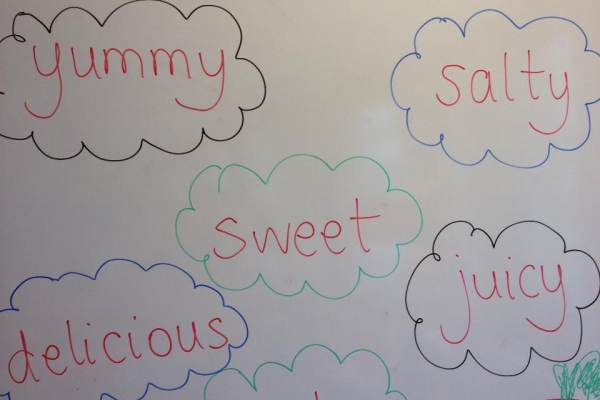 yummy
salty
sweet
juicy
delicious